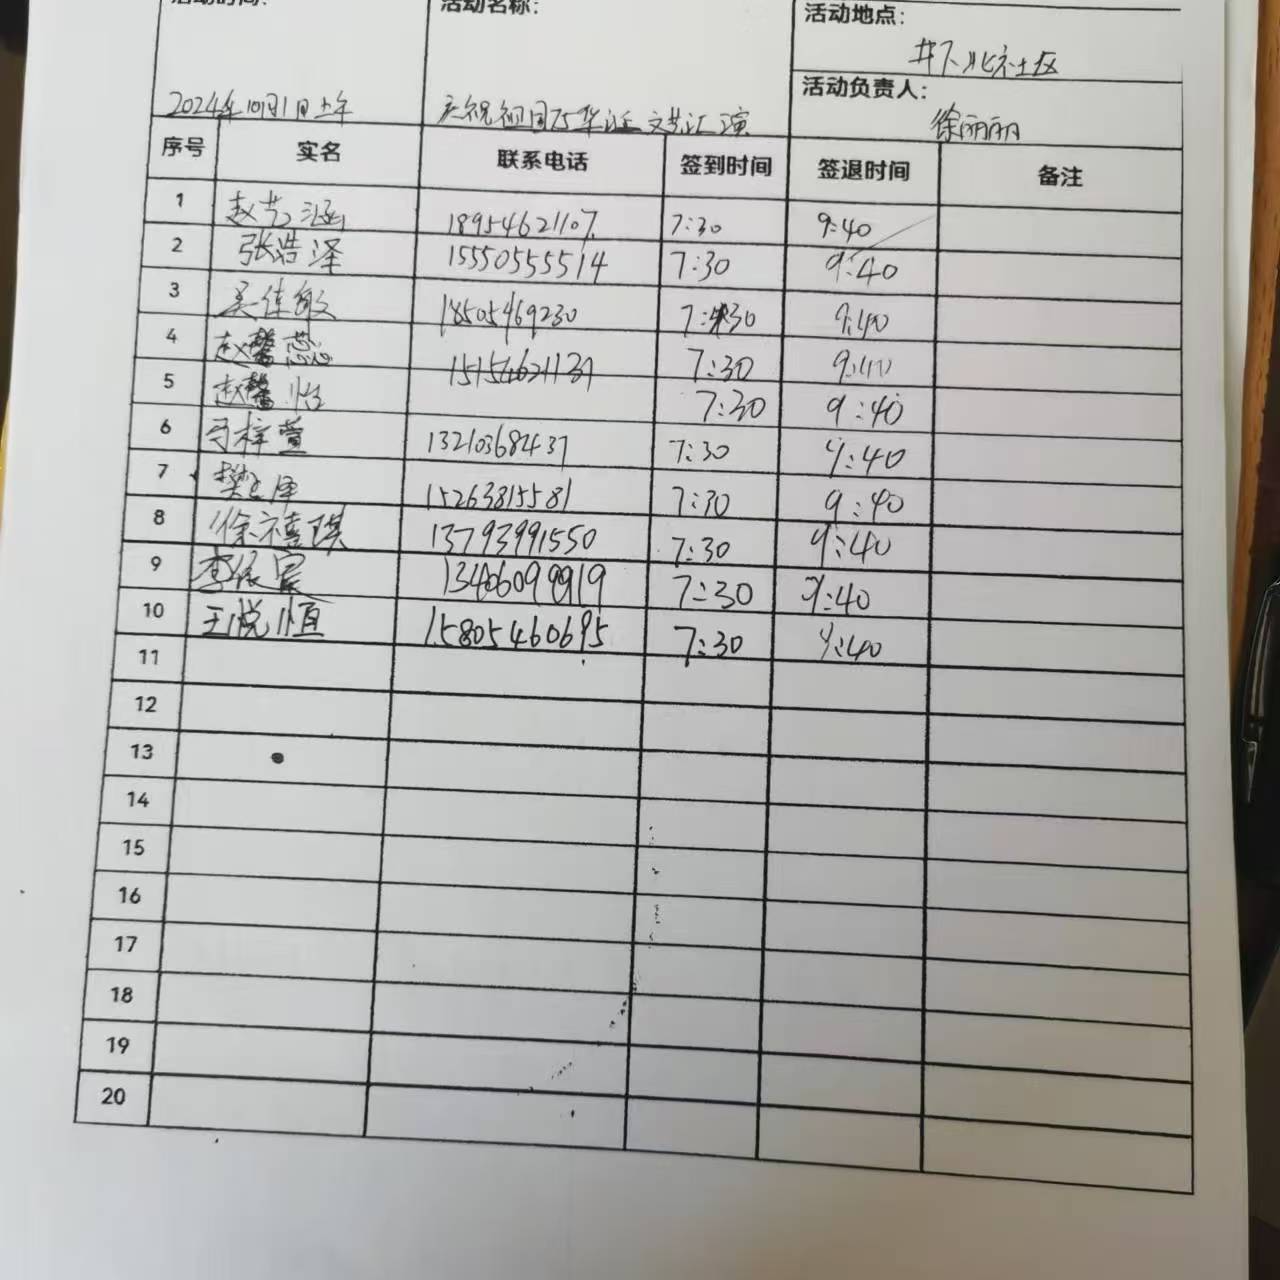 活动时间: 活动名称: 活动地点:
井下北社区
活动负责人:
2024年10月1日上午 庆祝祖国75华诞文艺汇演 徐丽丽
序号 实名 联系电话 签到时间 签退时间 备注
1 赵艺涵 18954621107 7:30 9:40
2 张浩泽 15550555514 7:30 9:40
3 吴佳敏 18505469230 7:30 9:40
4 赵馨蕊 15154621137 7:30 9:40
5 赵馨怡 7:30 9:40
6 于梓萱 13210368437 7:30 9:40
7 樊 泽 15263815581 7:30 9:40
8 徐禧琪 13793991550 7:30 9:40
9 李依宸 13406099919 7:30 9:40
10 王悦恒 15805460695 7:30 9:40
11
12
13
14
15
16
17
18
19
20